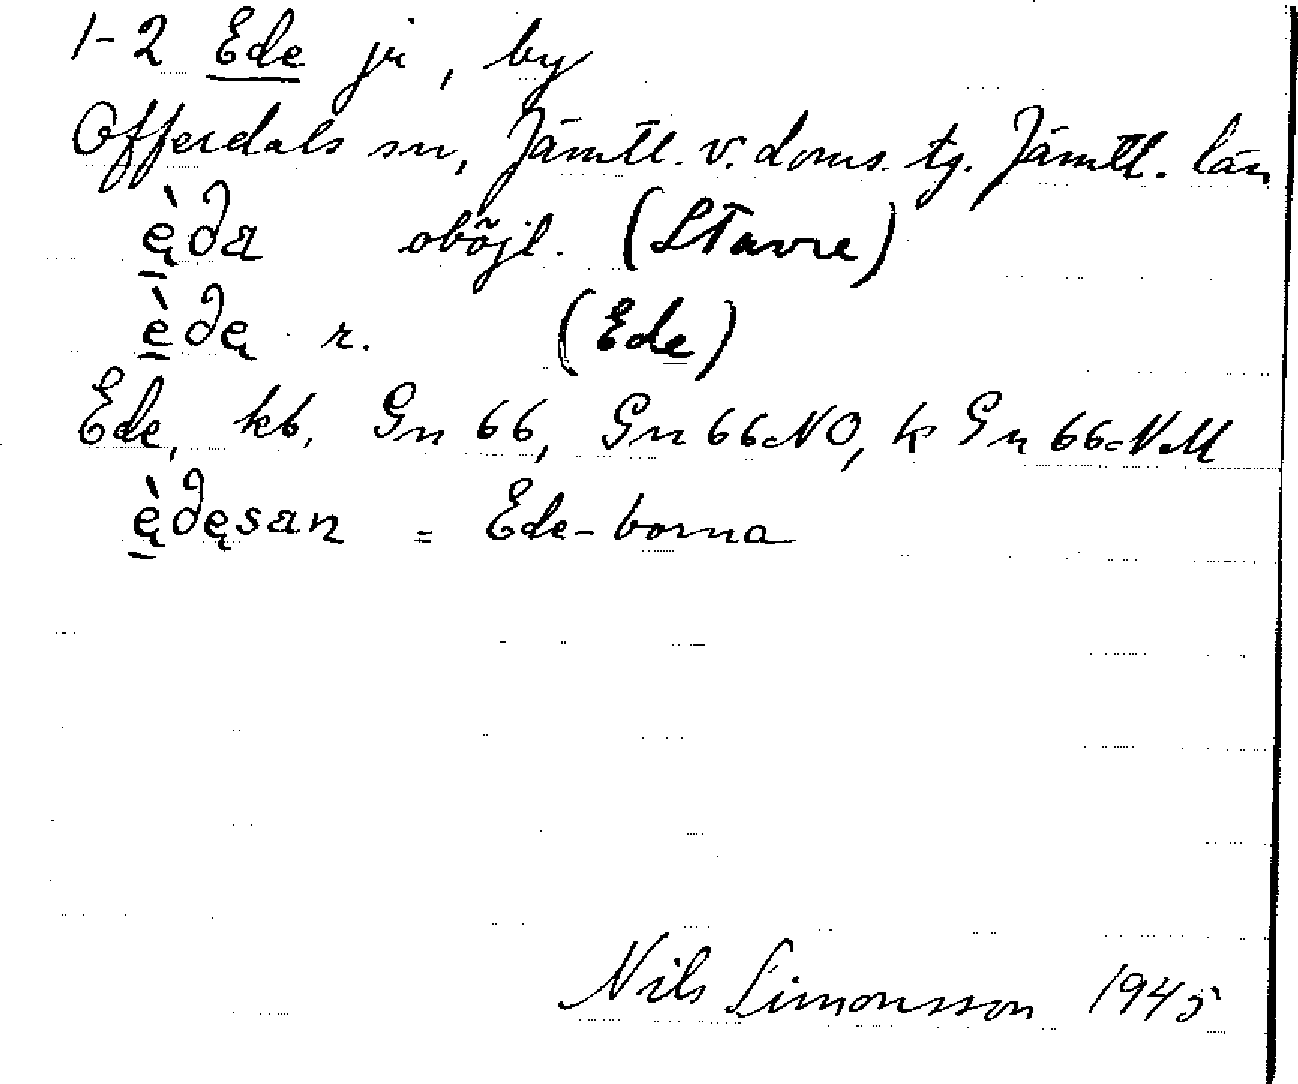 1-2 Ede ji, by
Offerdals sn, Jämtl. v. doms. tg. Jämtl. län
ę̀да oböjl. (Stavre)
èdę r. (Ede)
Ede, kb, Gn 66, Gn 66 NO, k Gn 66 NM
ę̀dęsan = Ede-borna
Nils Simonsson 1945